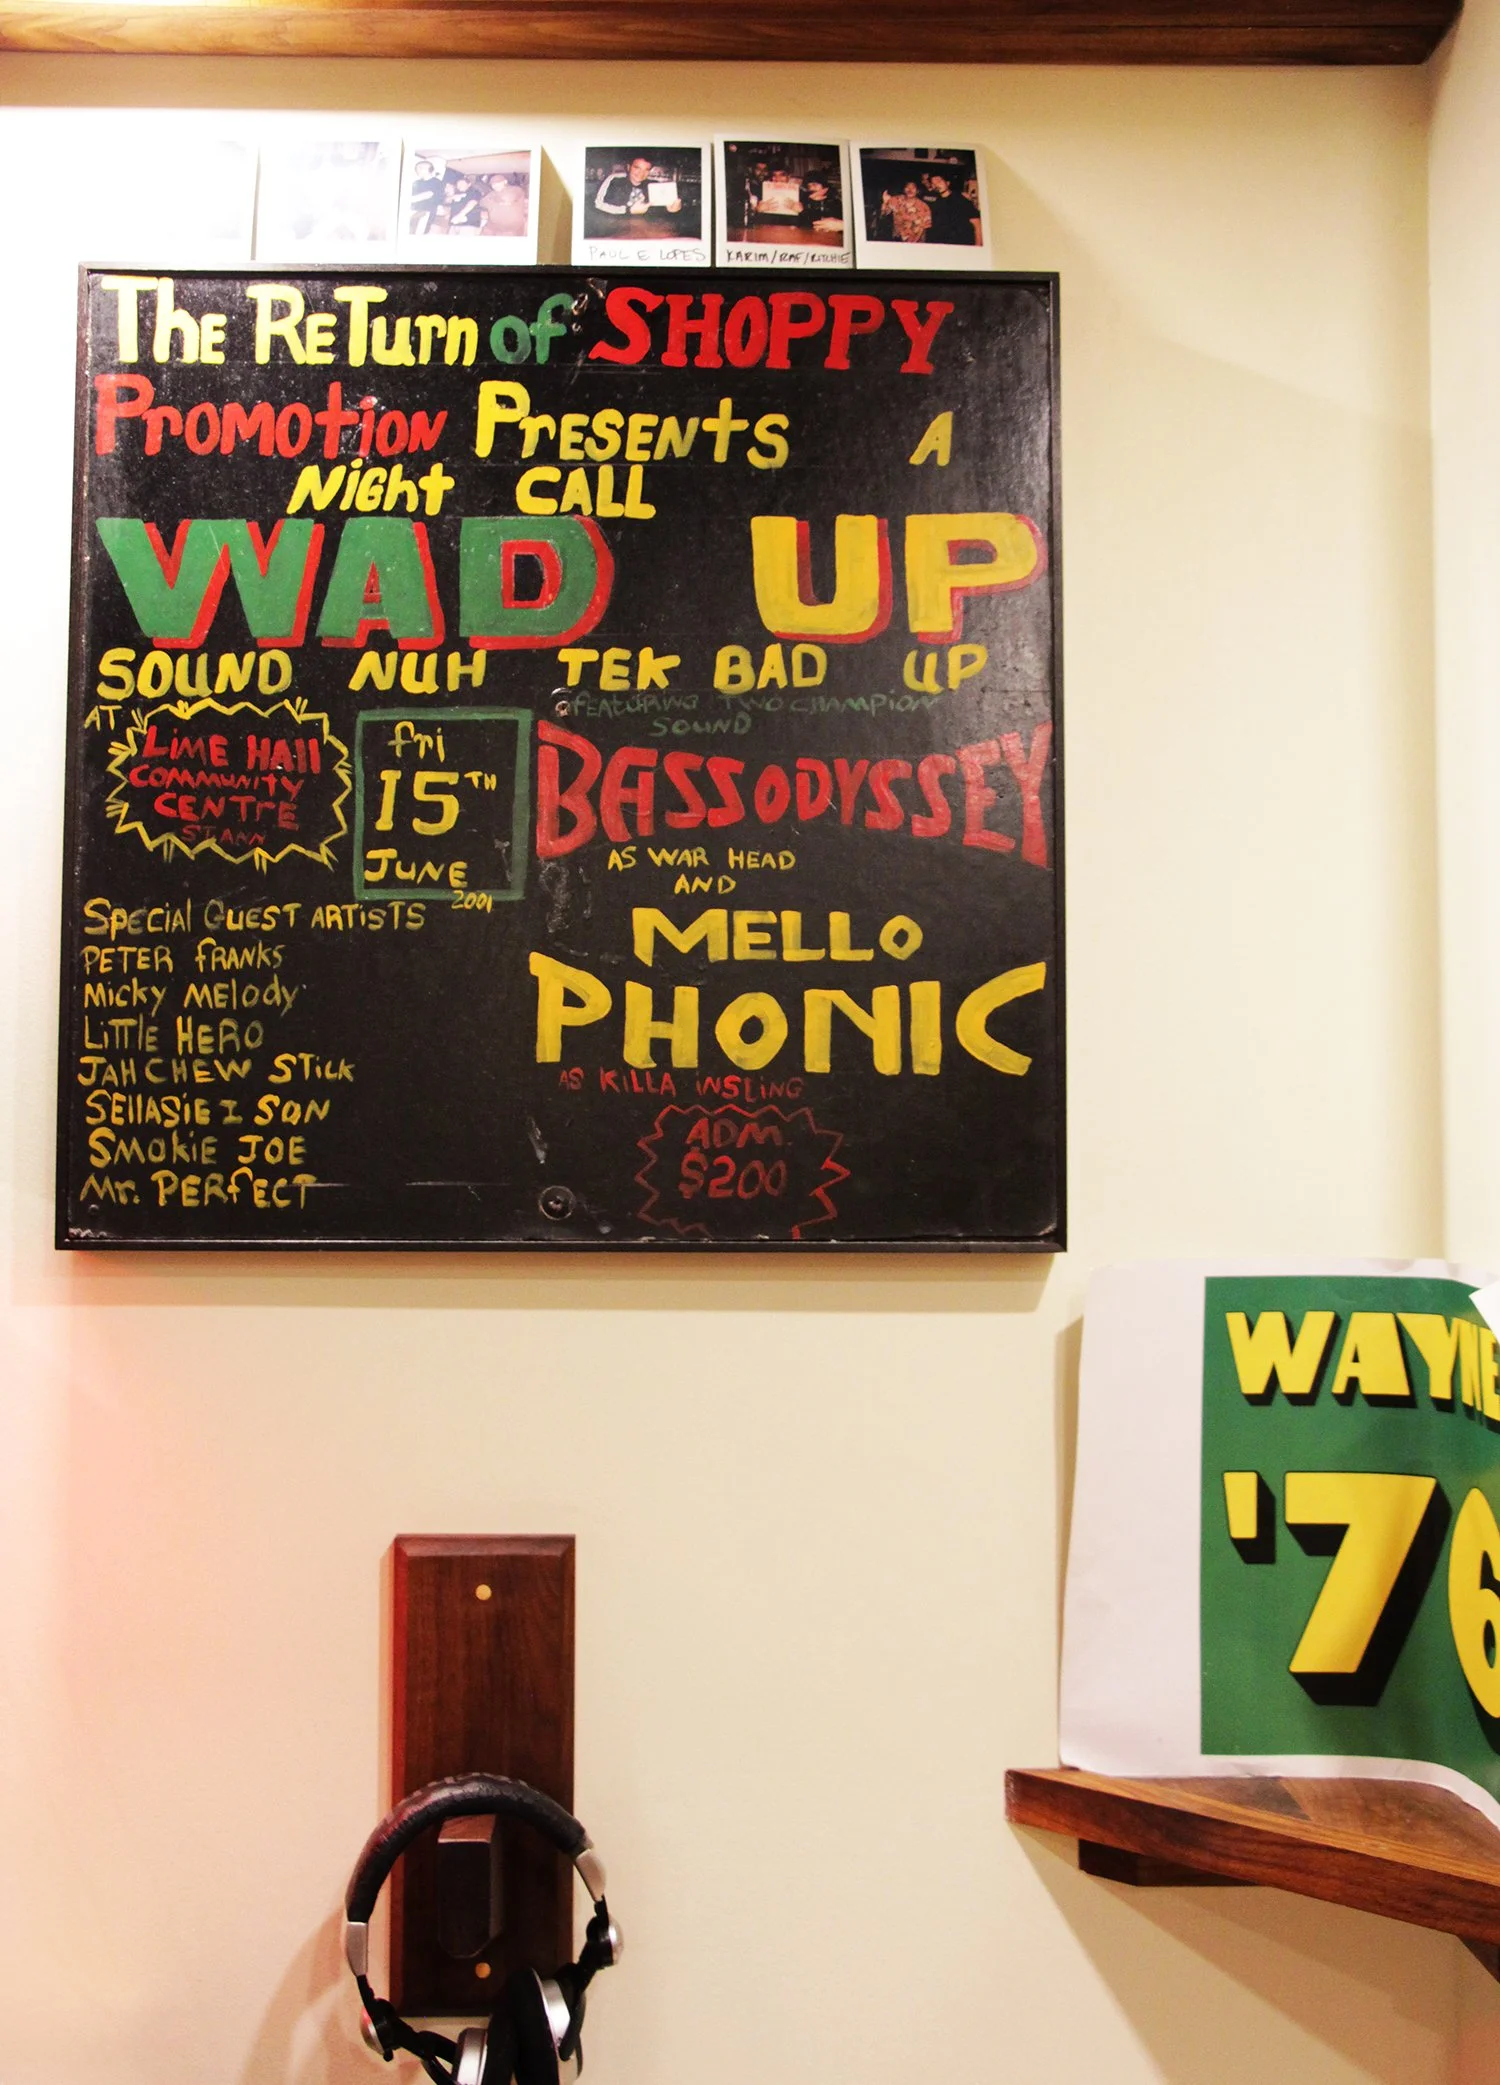 PAUL E LOPES
KARIM/RAF/RITCHIE
The ReTurn of SHOPPY
PromotioN PrESENtS A
Night CALL
WAD UP
SOUND NUH TEK BAD UP
AT
LiME HAll
COMMUNITY
CENTRE
ST ANN
fri
15TH
JUNE
2001
FEATURING TWO CHAMPiON
SOUND
BASSODYSSEY
AS WAR HEAD
AND
MELLO
PHONIC
AS KiLLA iNSLiNG
ADM.
$200
SPECiaL GUEST ARTiSTS
PETER fRANKS
Micky MElody
LiTTlE HERO
JAH CHEW STick
SEllASiE I SON
SMokiE JOE
Mr. PERfECT
WAYNE
'76